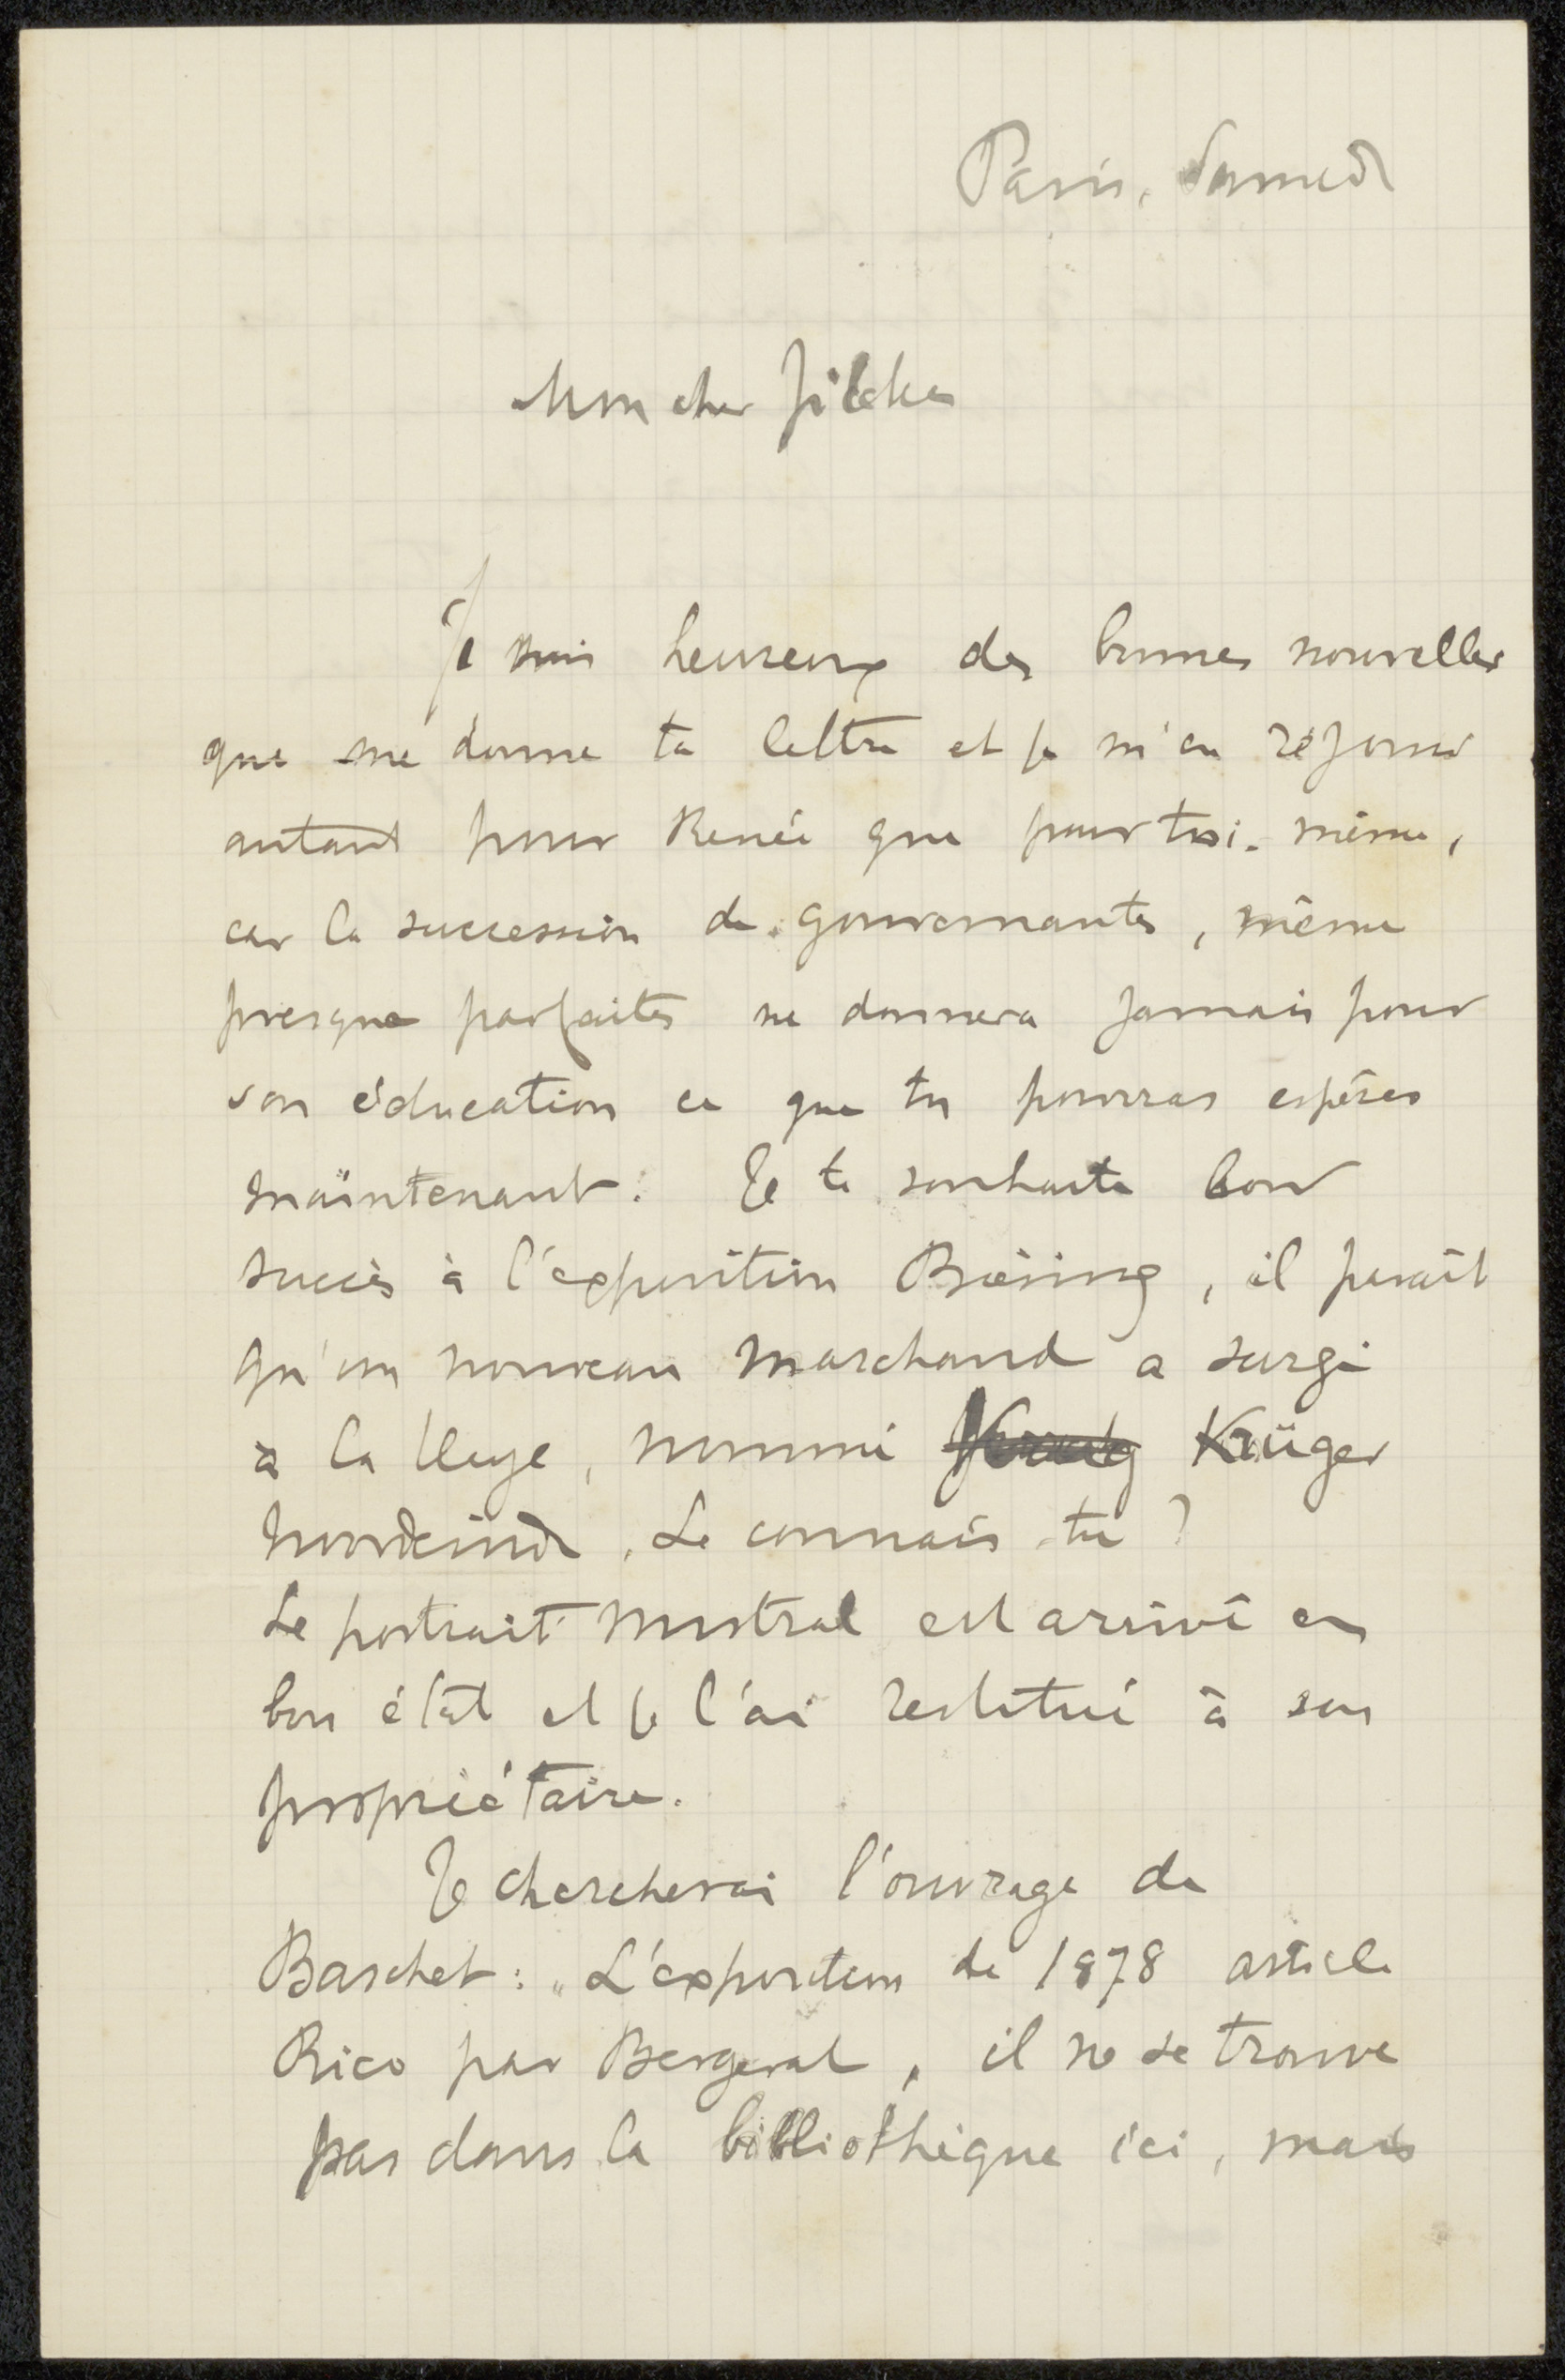 Paris, Samedi
Mon cher Zilcken
Je suis heureux des bonnes nouvelles
que me donne ta lettre et je m'en réjouis
autant pour Renée que pour toi-même,
car la succession de gouvernantes, même
presque parfaites ne donnera jamais pour
son éducation ce que tu pourras espérer
maintenant. Je te souhaite bon
succès à l'exposition Biesing, il paraît
qu'un nouveau marchand a surgi
à la Haye, nommé Krüger
. Le connais-tu ?
Le portrait Mistral est arrivé en
bon état et je l'ai restitué à son
propriétaire.
Je chercherai l'ouvrage de
Baschet : "L'exposition de 1878 article
Rico par Bergerat, il ne se trouve
pas dans la bibliothèque ici, mais